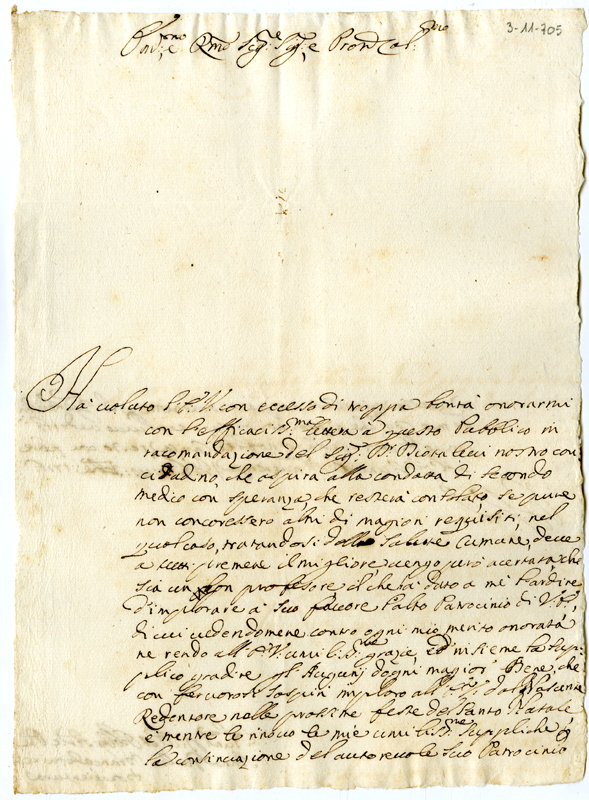 3-11-705
Em.e Rmo Sig.re Sig.e Pron Col:mo
Hà voluto l'E.V. con eccesso di troppa bontà onorarmi
con l'efficacis.ma lettera à questo Pubblico in
racomandazione del Sig.r D.r Piova lieu nostro con
citadino, che aspira alla condotta di secondo
medico con speranza, che resterà consolato se pure
non concoressero altri di magiori requisiti, nel
qual caso, trattandosi della Salute Comune, deve
a tutti premere il migliore vengo però acertata, che
sia un bon profesore il che hà dato a me l'ardire
d'implorare a' suo favore l'alto Patrocinio di V.E.,
di cui vedendomene contro ogni mio merito onorata
ne rendo all'E.V. umilis.me grazie, ed insieme la sup-
plico gradire gl'Auguri d'ogni magior Bene, che
con fervorosi sospiri imploro all'E.V. dal Nascente
Redentore nelle prossime feste del Santo Natale
e mentre le rinovo le mie umilis.me suppliche
la continuazione del autorevole suo Patrocinio